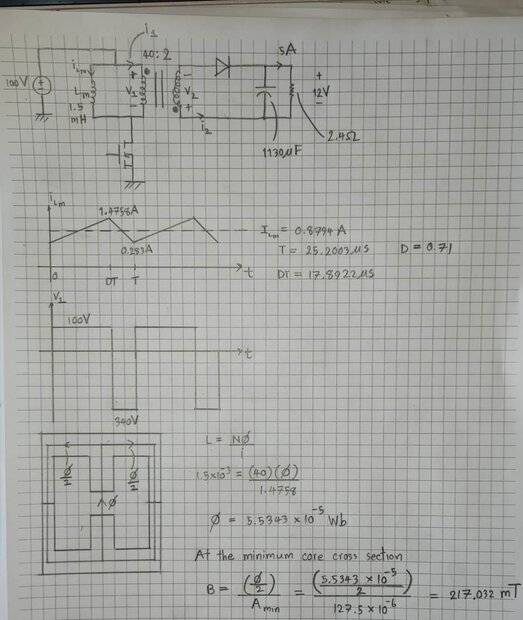 i1
40:2
5A
iLm
100V
Lm
1.5
mH
+
V1
-
-
V2
+
i2
+
12V
-
1130μF
2.4Ω
iLm
1.4758A
0.283A
ILm = 0.8794 A
T = 25.2003μS D = 0.71
DT = 17.8922μS
0 DT T t
V1
100V
t
340V
ϕ/2 ϕ/2
ϕ
L = Nϕ/i
1.5×10^-3 = (40)(ϕ)/1.4758
ϕ = 5.5343 × 10^-5 Wb
At the minimum core cross section
B = (ϕ/2)/Amin = (5.5343 × 10^-5/2)/127.5 × 10^-6 = 217.032 mT